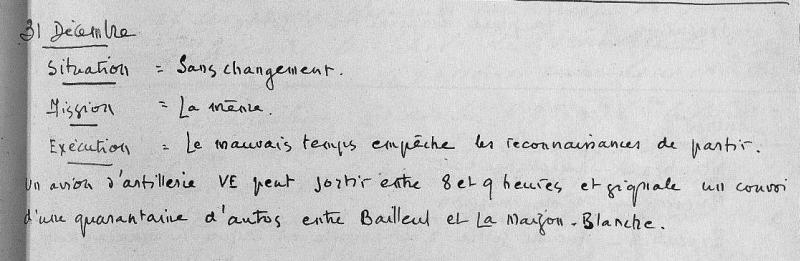 31 Décembre
Situation = Sans changement.
Mission = La même.
Exécution = Le mauvais temps empêche les reconnaissances de partir.
Un avion d'artillerie VE peut sortir entre 8 et 9 heures et signale un convoi
d'une quarantaine d'autos entre Bailleul et La Maison-Blanche.